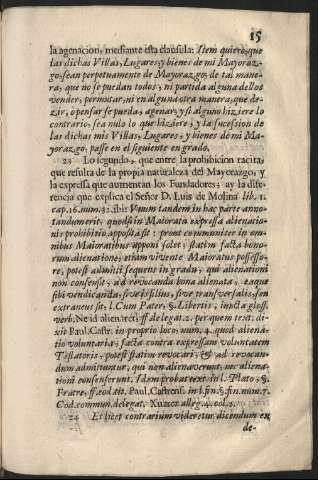 15
la agenacion, mediante esta clausula: Item quiero, que
las dichas Villas, Lugares, y bienes de mi Mayoraz-
go, sean perpetuamente de Mayorazgo, de tal mane-
ra, que no se puedan todos, ni partida alguna dellos
vender, permutar, ni en alguna otra manera, que de-
zir, ò pensar se pueda, agenar; y si alguno hiziere lo
contrario, sea nulo lo que hiziere; y la sucession de
las dichas mis Villas, Lugares, y bienes de mi Ma-
yorazgo, passe en el siguiente en grado.
23 Lo segundo, que entre la prohibicion tacita,
que resulta de la propia naturaleza del Mayorazgo, y
la expressa que aumentan los Fundadores; ay la dife-
rencia que explica el Señor D. Luis de Molina lib. 1.
cap. 16. num. ibi: Unum tandem in hac parte anno-
tandum erit, quod si in Maioratu expressa alienatio-
nis prohibitio apposita sit: prout communiter in om-
nibus Maioratibus apponi solet; statim facta bono-
rum alienatione, etiam vivente Maioratus possesso-
re, potest admitti sequens in gradu, qui alienationi
non consensit, ad revocanda bona alienata, eaque
sibi vendicanda, sive is filius, sive transversalis, seu
extraneus sit, l. Cum Pater, §. Libertis, iuncta gloss.
verb. Ne id alienaret, ff. de legat. 2. per quem text. di-
xit Paul. Castr. in proprio loco, num. 4. quod aliena-
tio voluntaria, facta contra expressam voluntatem
Testatoris, potest statim revocari, & ad revocan-
dum admittuntur, qui non alienaverunt, nec aliena-
tioni consenserunt. Idem probat text. in l. Plato, §.
Fratre, ff. eod. tit. Paul. Castrens. in l. fin. §. fin. num. 7.
Cod. commun. de legat. Xuarez alleg. 4. col. 3.
24 Et licet contrarium videretur dicendum ex
de-